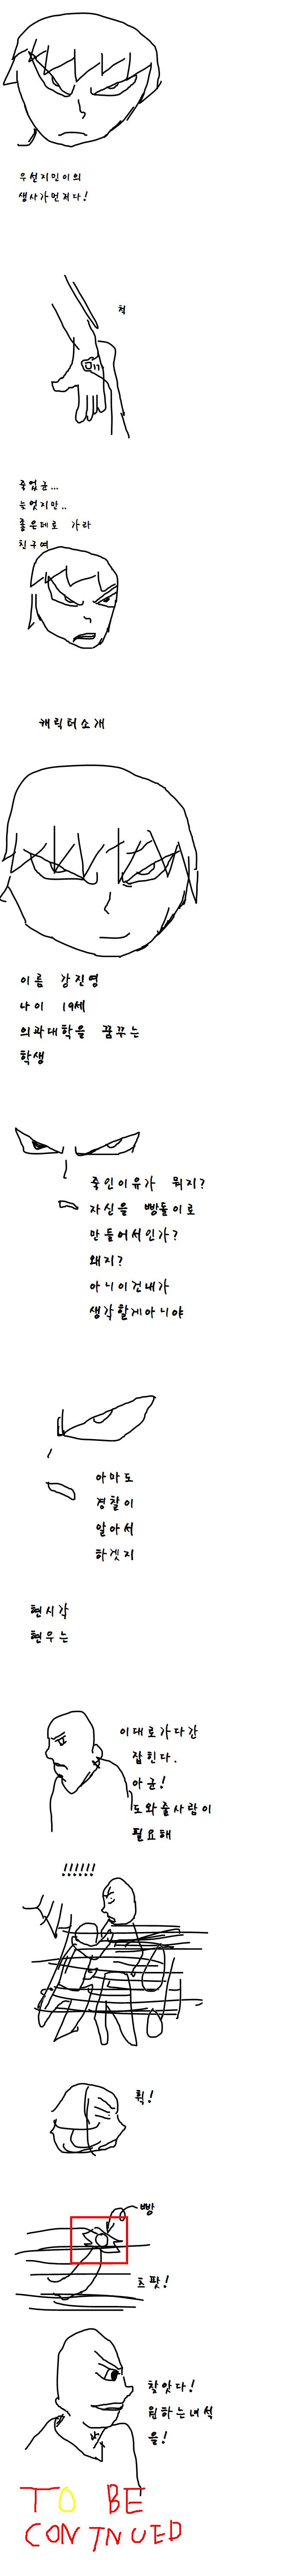 우선지민이의
생사가먼저다!
척
죽었군...
늦엇지만..
좋은데로 가라
친구여
캐릭터소개
이름 강진영
나이 19세
의과대학을 꿈꾸는
학생
죽인이유가 뭐지?
자신을 빵돌이로
만들어서인가?
왜지?
아니이건내가
생각할게아니야
아마도
경찰이
알아서
하겟지
현시각
현우는
이대로가다간
잡힌다.
아균!
도와줄사람이
필요해
!!!!!!
휙!
빵
츠팟!
찾앗다!
원하는녀석
을!
TO BE
CONTNUED